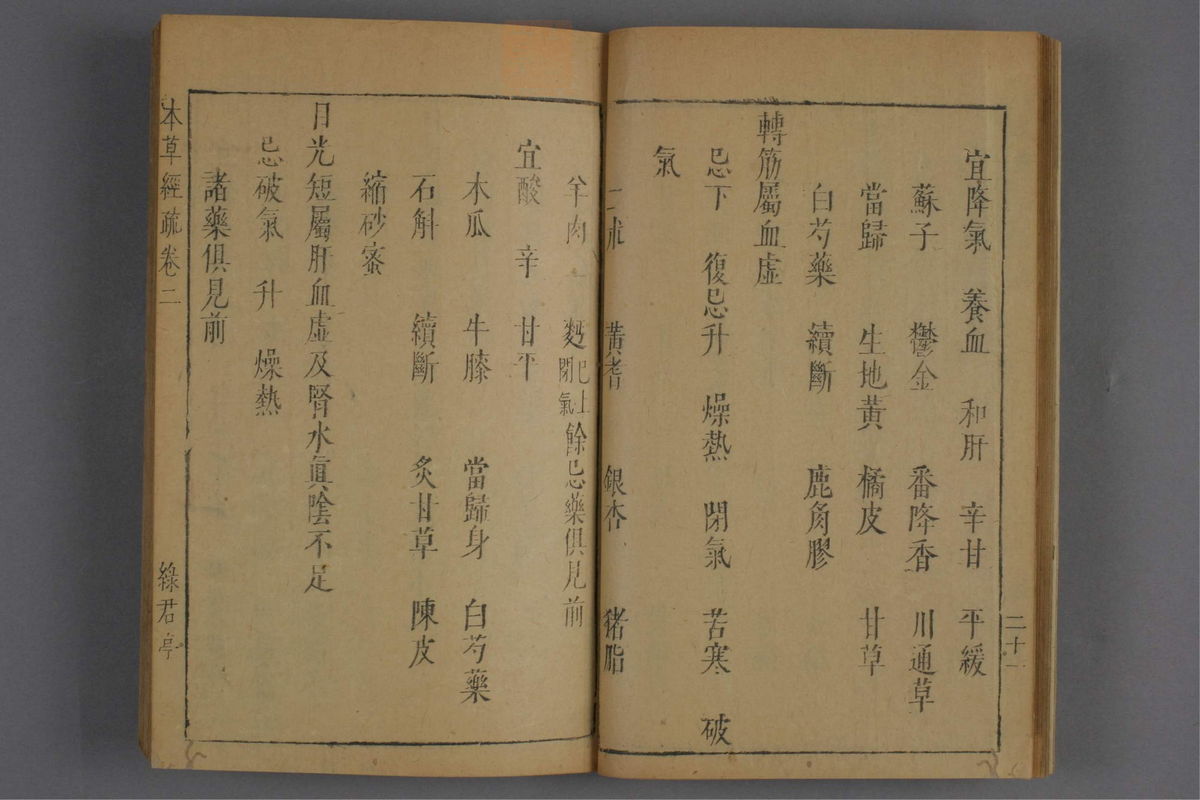 宜降氣　養血　和肝　辛甘　平緩
蘇子　鬱金　番降香　川通草
當歸　生地黃　橘皮　甘草
白芍藥　續斷　鹿角膠
轉筋屬血虛
忌下　復忌升　燥熱　閉氣　苦寒　破
氣
二朮　黃耆　銀杏　猪脂
羊肉　麪已上閉氣餘忌藥俱見前
宜酸　辛　甘平
木瓜　牛膝　當歸身　白芍藥
石斛　續斷　炙甘草　陳皮
縮砂蜜
目光短屬肝血虛及腎水眞陰不足
忌破氣　升　燥熱
諸藥俱見前
本草經疏卷二　綠君亭
二十一